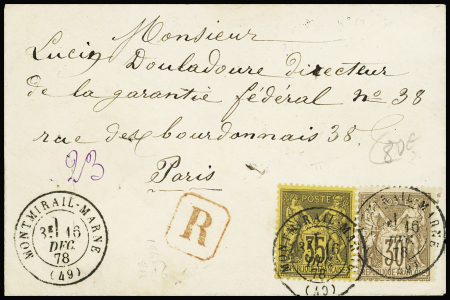 Monsieur
Lucien Douladoure directeur
de la garantie fédéral no 38
rue des bourdonnais 38
Paris
23
80€
R
MONTMIRAIL-MARNE
16
DEC.
78
(49)
POSTE
35
MONTMIRAIL-MARNE
16
78
(49)
30
RAIL-MARNE
16